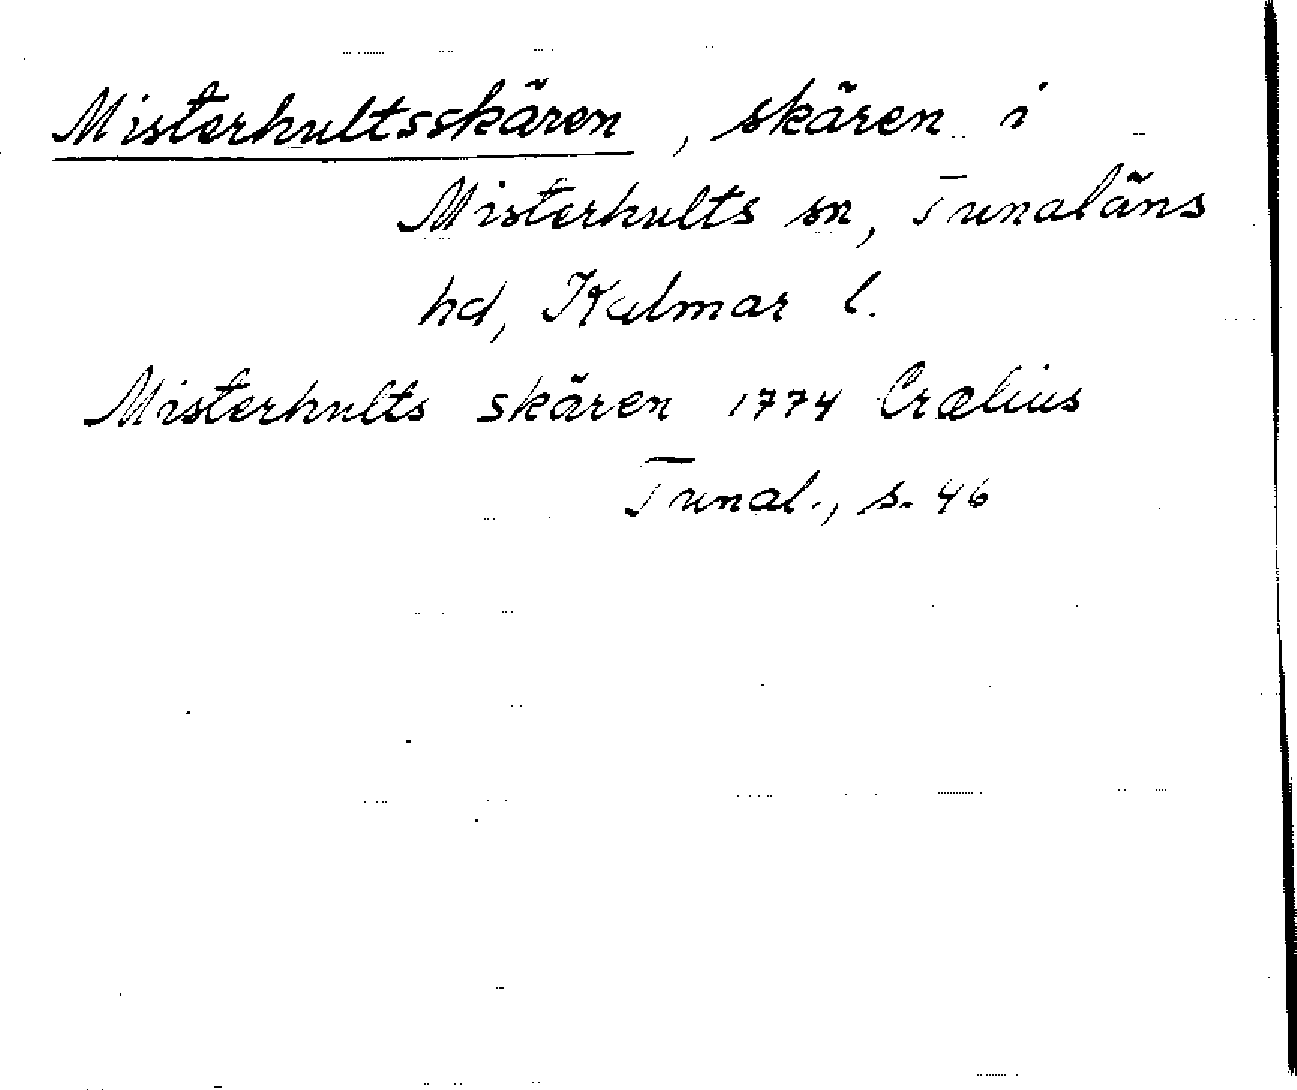 Misterhultsskären, skären i
Misterhults sn, Tunaläns
hd, Kalmar l.
Misterhults skären 1774 Crælius
Tunal., s. 46